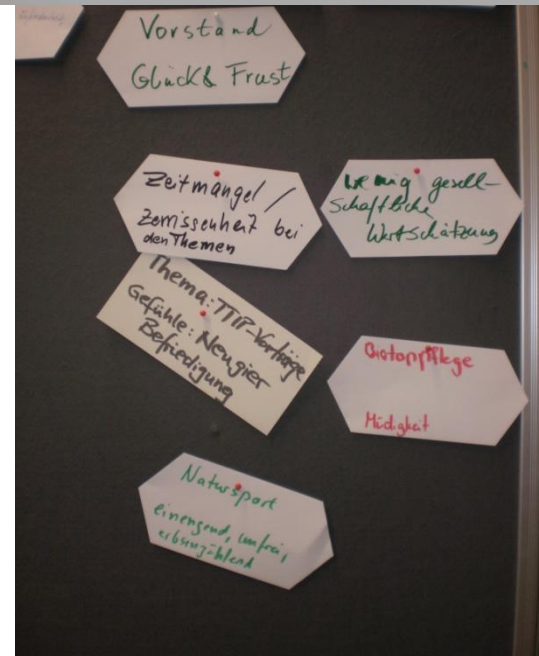 Vorstand
Glück & Frust
Zeitmangel /
Zerrissenheit bei
den Themen
wenig gesell-
schaftliche
Wertschätzung
Thema: TTIP-Vorträge
Gefühle: Neugier
Befriedigung
Biotoppflege
Müdigkeit
Natursport
einengend, unfrei,
erbsenzählend